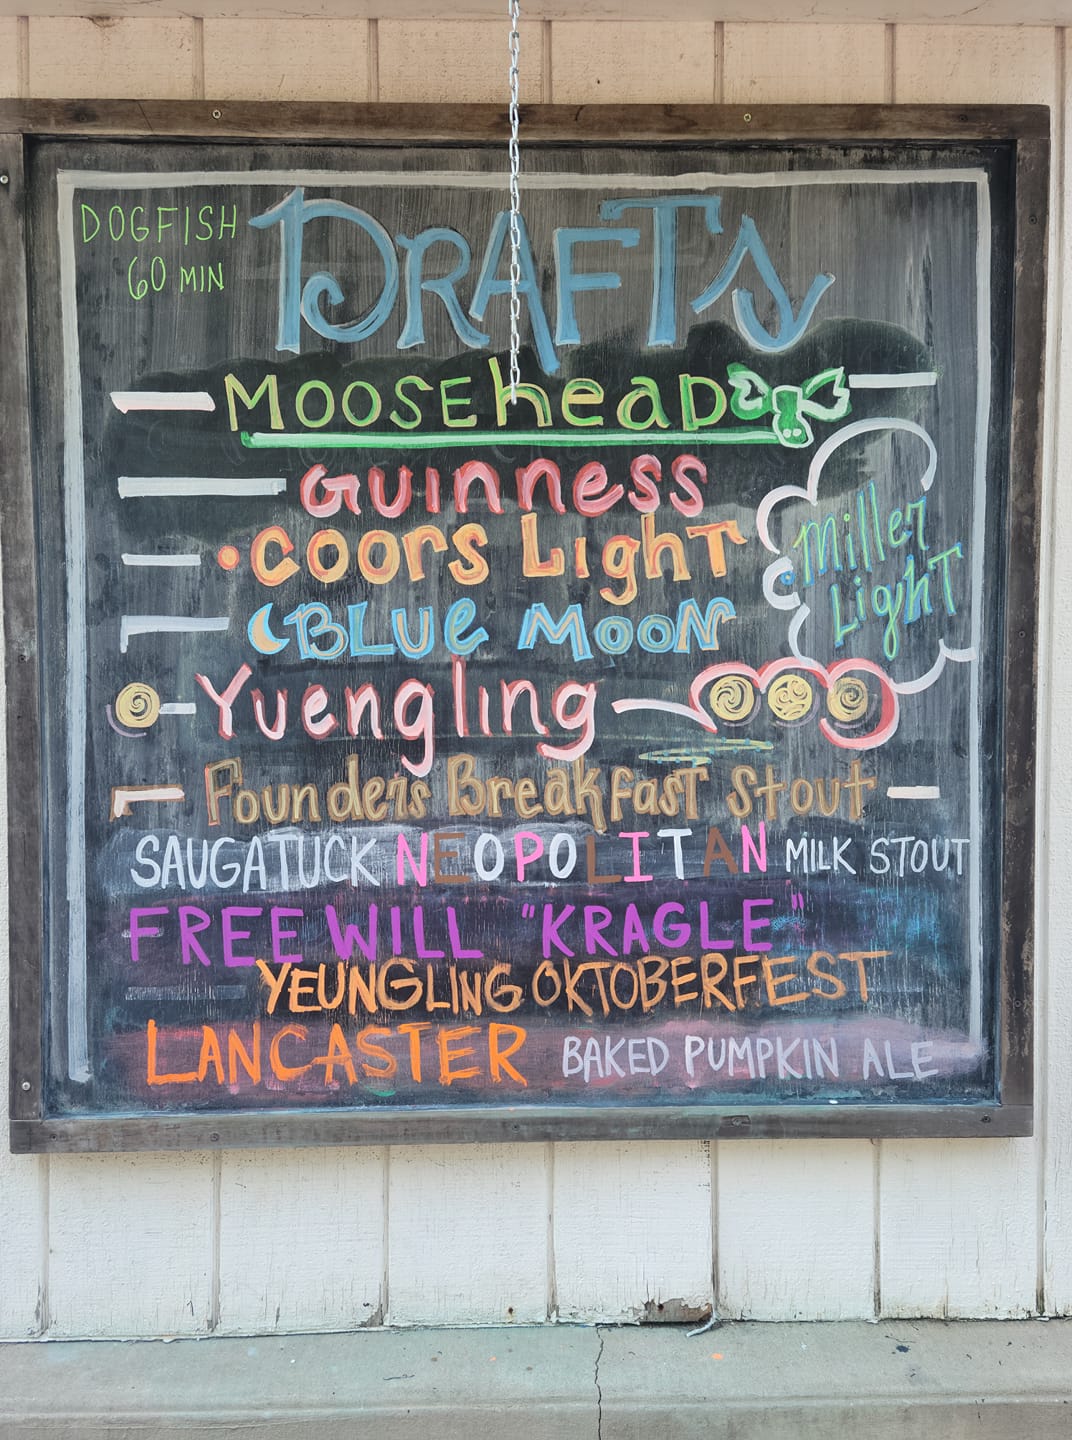 DOGFISH
60 MIN
DRAFTS
MOOSEheaD
GUINNESS
COORS LIGHT
BLUE MOON
Miller
LighT
Yuengling
Founders Breakfast Stout
SAUGATUCK NEOPOLITAN MILK STOUT
FREE WILL "KRAGLE"
YEUNGLING OKTOBERFEST
LANCASTER BAKED PUMPKIN ALE